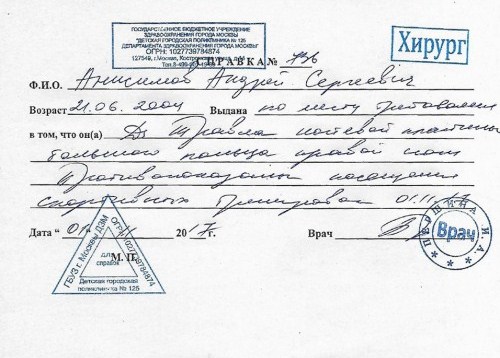 ГОСУДАРСТВЕННОЕ БЮДЖЕТНОЕ УЧРЕЖДЕНИЕ
ЗДРАВООХРАНЕНИЯ ГОРОДА МОСКВЫ
"ДЕТСКАЯ ГОРОДСКАЯ ПОЛИКЛИНИКА № 125
ДЕПАРТАМЕНТА ЗДРАВООХРАНЕНИЯ ГОРОДА МОСКВЫ"
ОГРН: 1027739784874
127549, г.Москва,
Хирург
СПРАВКА №
Ф.И.О. Анисимов Андрей Сергеевич
Возраст 21.06.2004 Выдана по месту требования
в том, что он(а) Ds Травма ногтевой пластины
большого пальца правой ноги
Противопоказаны посещения
спортивных тренировок 01.11.17
Дата "01" 11 2017г. Врач
М.П.
ГБУЗ г. Москвы ДЗМ
ОГРН 1027739784874
для
справок
Детская городская
поликлиника № 125
ПЕРШИНА И.А.
Врач